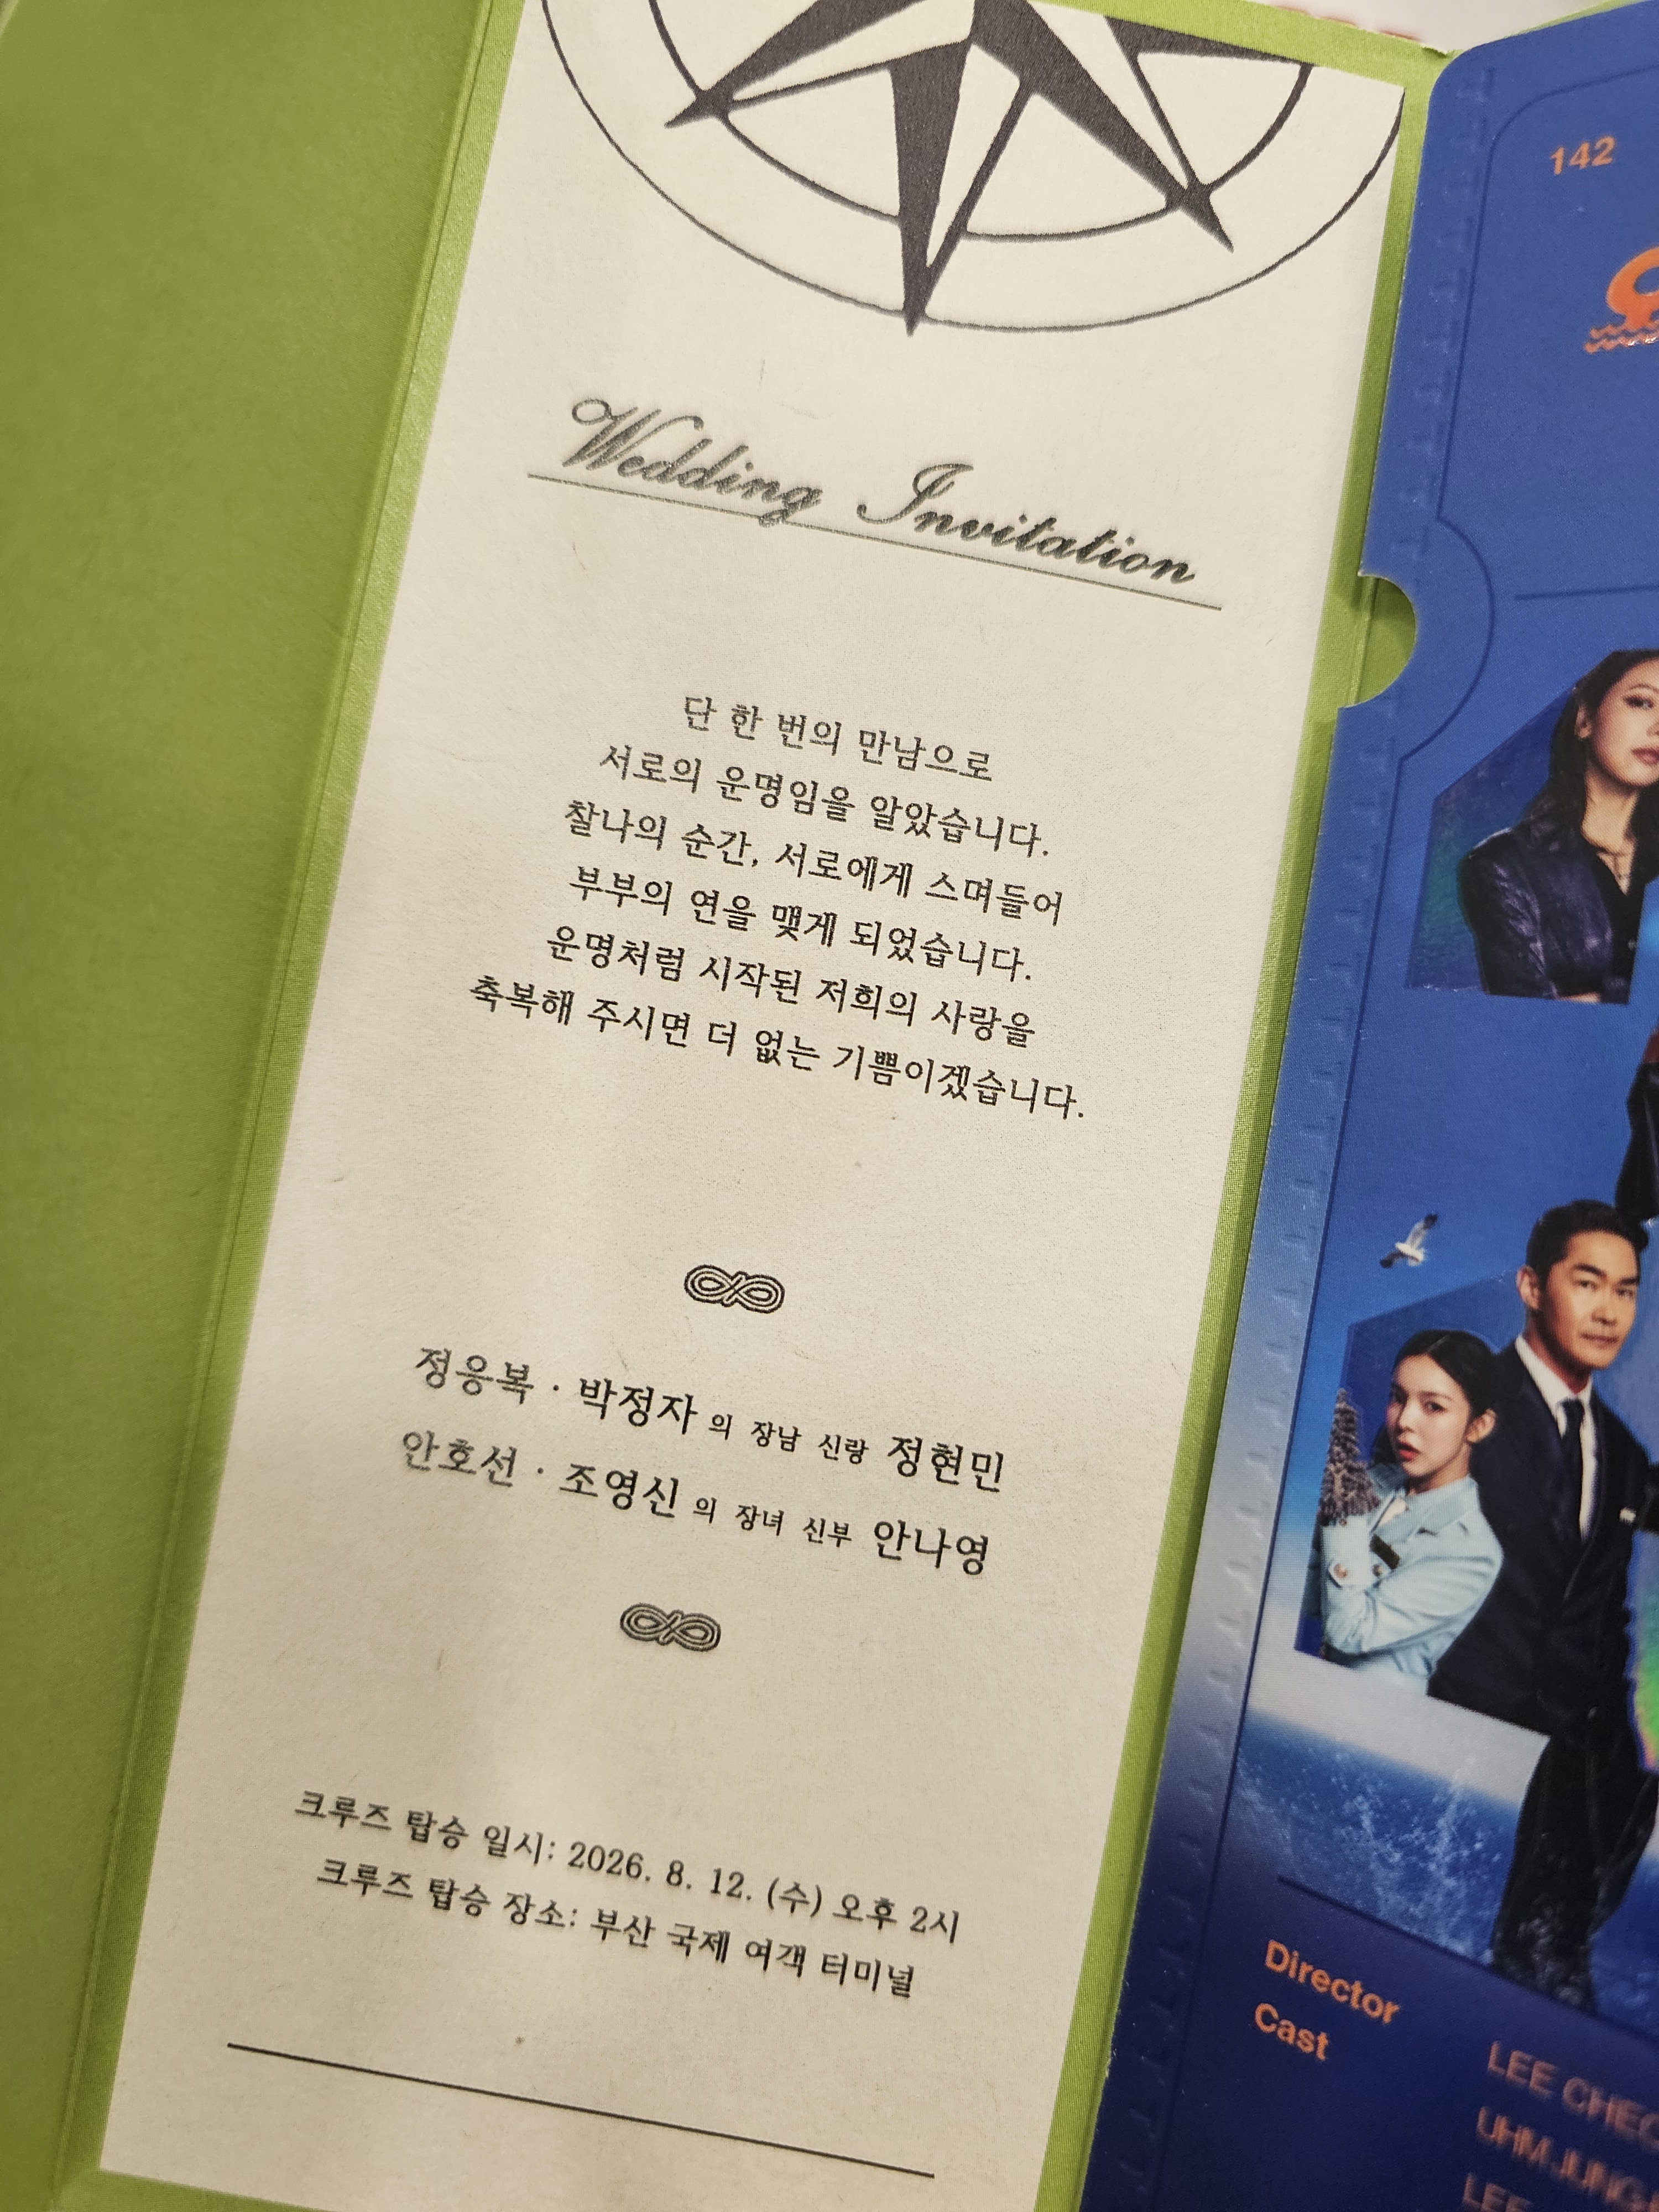 Wedding Invitation
단 한 번의 만남으로
서로의 운명임을 알았습니다.
찰나의 순간, 서로에게 스며들어
부부의 연을 맺게 되었습니다.
운명처럼 시작된 저희의 사랑을
축복해 주시면 더 없는 기쁨이겠습니다.
정응복 · 박정자 의 장남 신랑 정현민
안호선 · 조영신 의 장녀 신부 안나영
크루즈 탑승 일시: 2026. 8. 12. (수) 오후 2시
크루즈 탑승 장소: 부산 국제 여객 터미널
142
Director
Cast
LEE